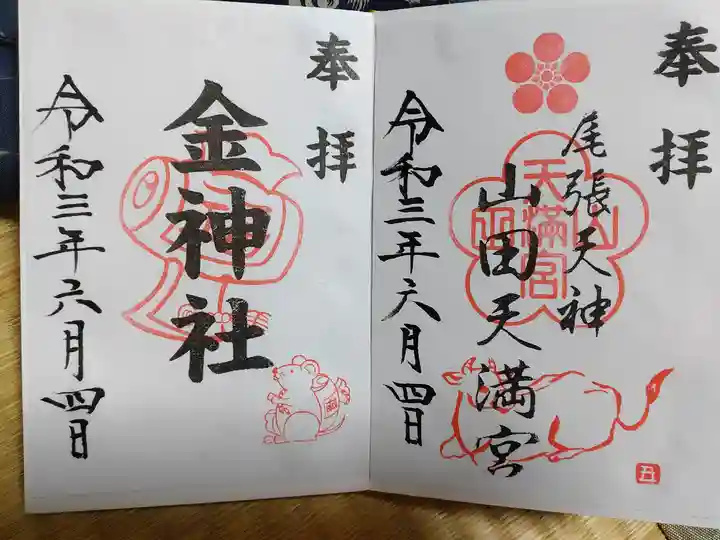 奉拝
尾張天神
山田天満宮
天満宮
山
令和三年六月四日
丑
奉拝
金神社
令和三年六月四日